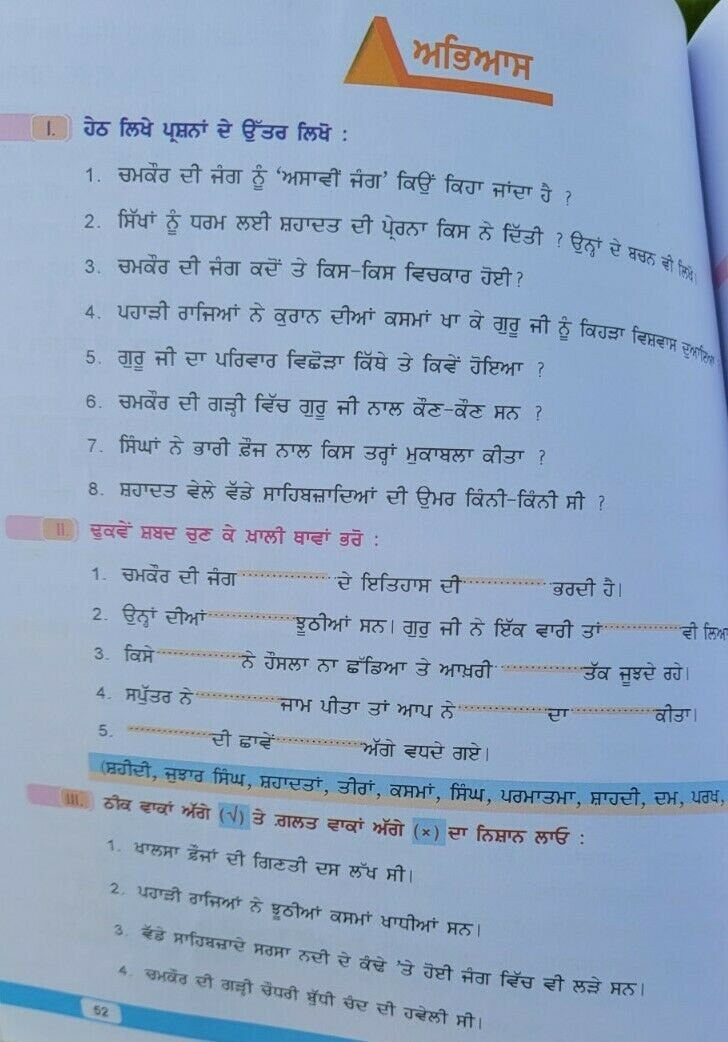 ਅਭਿਆਸ
I. ਹੇਠ ਲਿਖੇ ਪ੍ਰਸ਼ਨਾਂ ਦੇ ਉੱਤਰ ਲਿਖੋ :
1. ਚਮਕੌਰ ਦੀ ਜੰਗ ਨੂੰ ‘ਅਸਾਵੀਂ ਜੰਗ’ ਕਿਉਂ ਕਿਹਾ ਜਾਂਦਾ ਹੈ ?
2. ਸਿੱਖਾਂ ਨੂੰ ਧਰਮ ਲਈ ਸ਼ਹਾਦਤ ਦੀ ਪ੍ਰੇਰਨਾ ਕਿਸ ਨੇ ਦਿੱਤੀ ? ਉਨ੍ਹਾਂ ਦੇ ਬਚਨ ਵੀ ਲਿਖੋ।
3. ਚਮਕੌਰ ਦੀ ਜੰਗ ਕਦੋਂ ਤੇ ਕਿਸ-ਕਿਸ ਵਿਚਕਾਰ ਹੋਈ?
4. ਪਹਾੜੀ ਰਾਜਿਆਂ ਨੇ ਕੁਰਾਨ ਦੀਆਂ ਕਸਮਾਂ ਖਾ ਕੇ ਗੁਰੂ ਜੀ ਨੂੰ ਕਿਹੜਾ ਵਿਸ਼ਵਾਸ
5. ਗੁਰੂ ਜੀ ਦਾ ਪਰਿਵਾਰ ਵਿਛੋੜਾ ਕਿੱਥੇ ਤੇ ਕਿਵੇਂ ਹੋਇਆ ?
6. ਚਮਕੌਰ ਦੀ ਗੜ੍ਹੀ ਵਿੱਚ ਗੁਰੂ ਜੀ ਨਾਲ ਕੌਣ-ਕੌਣ ਸਨ ?
7. ਸਿੰਘਾਂ ਨੇ ਭਾਰੀ ਫ਼ੌਜ ਨਾਲ ਕਿਸ ਤਰ੍ਹਾਂ ਮੁਕਾਬਲਾ ਕੀਤਾ ?
8. ਸ਼ਹਾਦਤ ਵੇਲੇ ਵੱਡੇ ਸਾਹਿਬਜ਼ਾਦਿਆਂ ਦੀ ਉਮਰ ਕਿੰਨੀ-ਕਿੰਨੀ ਸੀ ?
II. ਢੁਕਵੇਂ ਸ਼ਬਦ ਚੁਣ ਕੇ ਖ਼ਾਲੀ ਥਾਵਾਂ ਭਰੋ :
1. ਚਮਕੌਰ ਦੀ ਜੰਗ .............. ਦੇ ਇਤਿਹਾਸ ਦੀ .............. ਭਰਦੀ ਹੈ।
2. ਉਨ੍ਹਾਂ ਦੀਆਂ .............. ਝੂਠੀਆਂ ਸਨ। ਗੁਰੂ ਜੀ ਨੇ ਇੱਕ ਵਾਰੀ ਤਾਂ .............. ਵੀ
3. ਕਿਸੇ .............. ਨੇ ਹੌਸਲਾ ਨਾ ਛੱਡਿਆ ਤੇ ਆਖ਼ਰੀ .............. ਤੱਕ ਜੂਝਦੇ ਰਹੇ।
4. ਸਪੁੱਤਰ ਨੇ .............. ਜਾਮ ਪੀਤਾ ਤਾਂ ਆਪ ਨੇ .............. ਦਾ .............. ਕੀਤਾ।
5. .............. ਦੀ ਛਾਵੇਂ .............. ਅੱਗੇ ਵਧਦੇ ਗਏ।
(ਸ਼ਹੀਦੀ, ਜੁਝਾਰ ਸਿੰਘ, ਸ਼ਹਾਦਤਾਂ, ਤੀਰਾਂ, ਕਸਮਾਂ, ਸਿੰਘ, ਪਰਮਾਤਮਾ, ਸ਼ਾਹਦੀ, ਦਮ, ਪਰਖ,
III. ਠੀਕ ਵਾਕਾਂ ਅੱਗੇ (√) ਤੇ ਗ਼ਲਤ ਵਾਕਾਂ ਅੱਗੇ (×) ਦਾ ਨਿਸ਼ਾਨ ਲਾਓ :
1. ਖਾਲਸਾ ਫ਼ੌਜਾਂ ਦੀ ਗਿਣਤੀ ਦਸ ਲੱਖ ਸੀ।
2. ਪਹਾੜੀ ਰਾਜਿਆਂ ਨੇ ਝੂਠੀਆਂ ਕਸਮਾਂ ਖਾਧੀਆਂ ਸਨ।
3. ਵੱਡੇ ਸਾਹਿਬਜ਼ਾਦੇ ਸਰਸਾ ਨਦੀ ਦੇ ਕੰਢੇ ’ਤੇ ਹੋਈ ਜੰਗ ਵਿੱਚ ਵੀ ਲੜੇ ਸਨ।
4. ਚਮਕੌਰ ਦੀ ਗੜ੍ਹੀ ਚੌਧਰੀ ਬੁੱਧੀ ਚੰਦ ਦੀ ਹਵੇਲੀ ਸੀ।
52